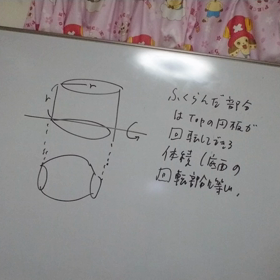 r
r
ふくらんだ部分
はTopの円板が
回転してできる
体積(底面の
回転部分と等しい。